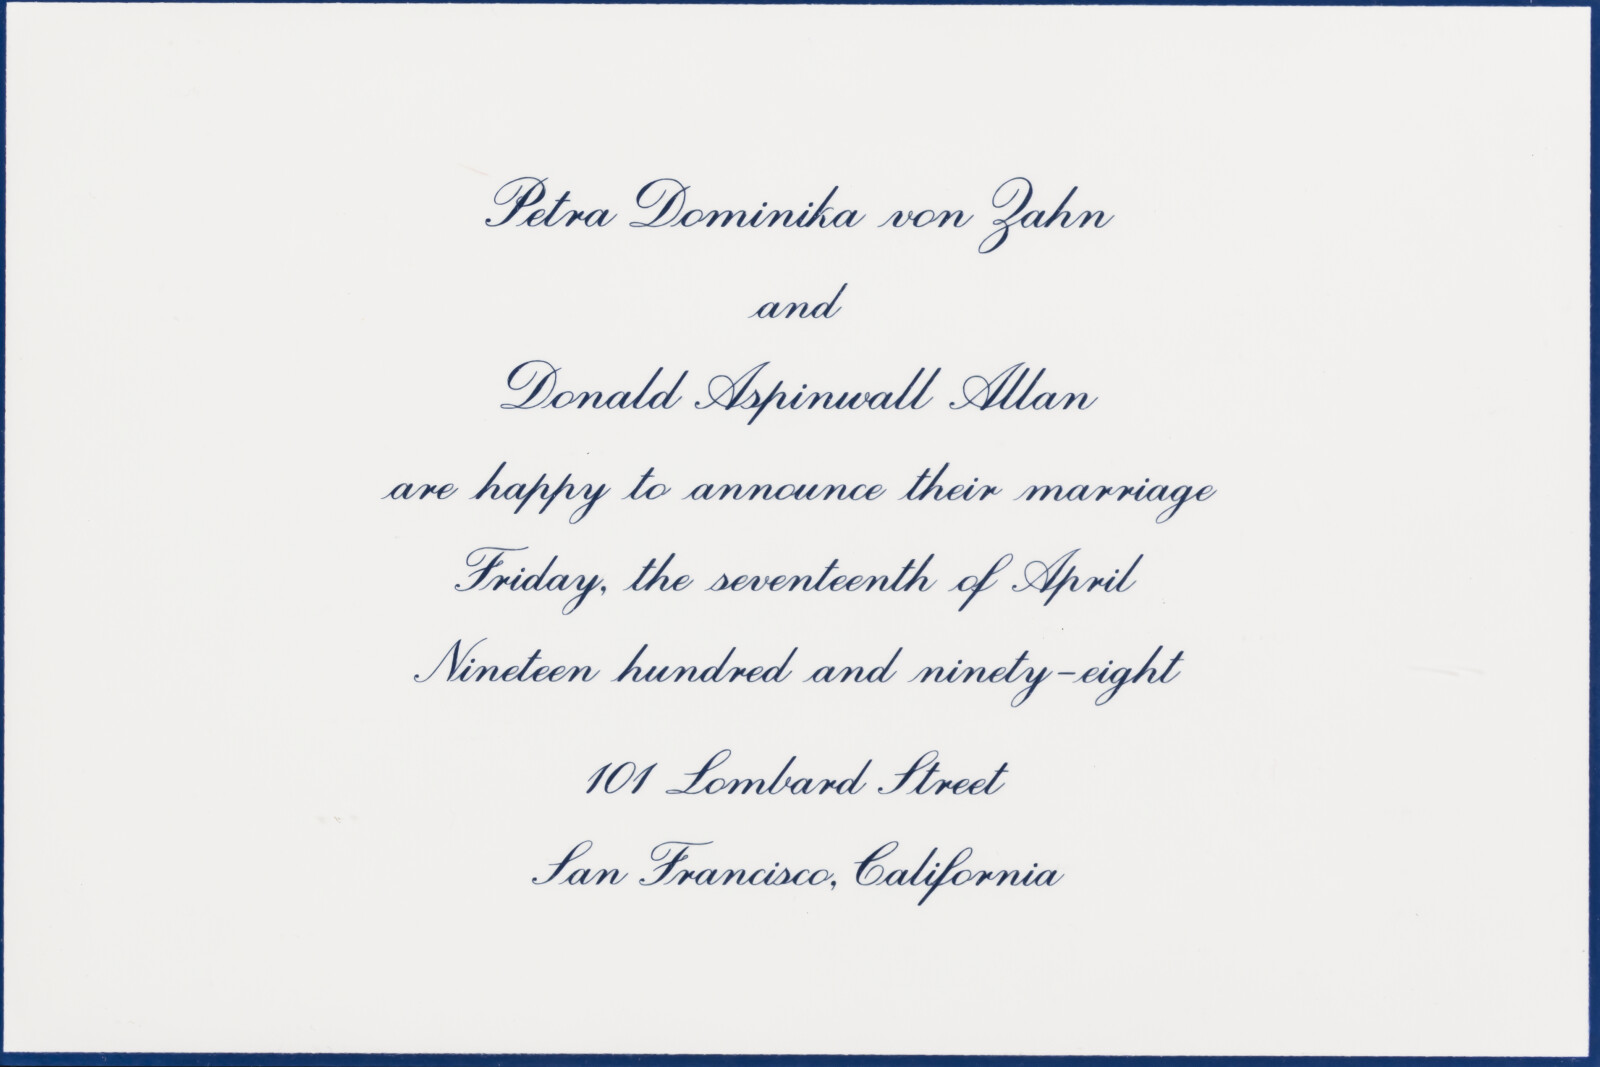 Petra Dominika von Zahn
and
Donald Aspinwall Allan
are happy to announce their marriage
Friday, the seventeenth of April
Nineteen hundred and ninety-eight
101 Lombard Street
San Francisco, California